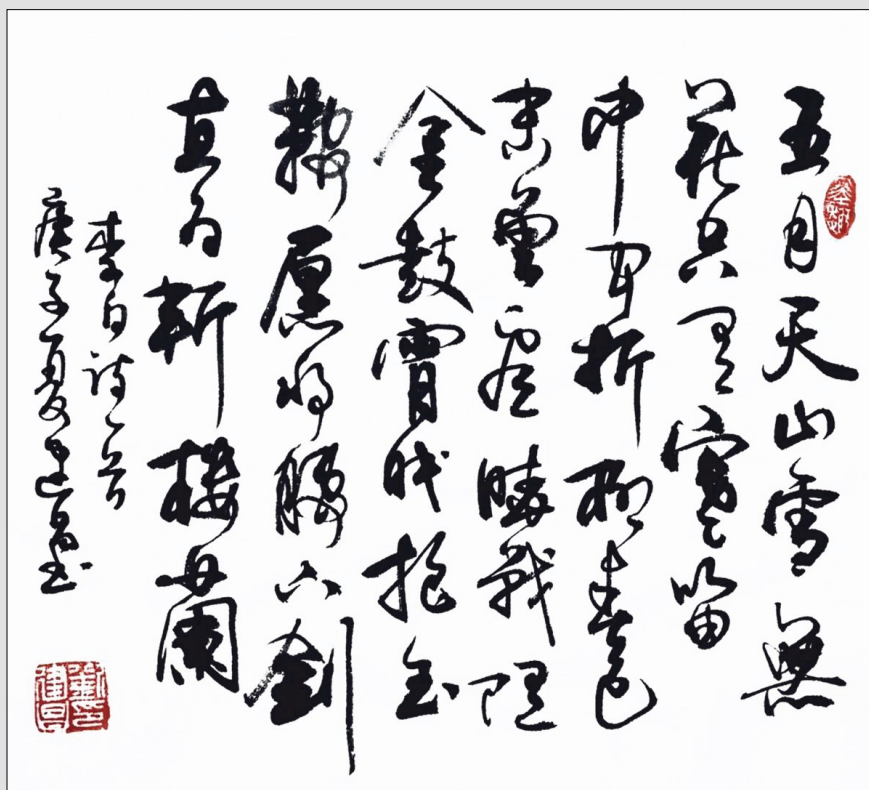 五月天山雪無
花只有寒笛
中闻折柳春色
未曾看曉戰随
金鼓宵眠抱玉
鞍愿将腰下剑
直为斬樓蘭
李白诗一首
庚子夏建昌书